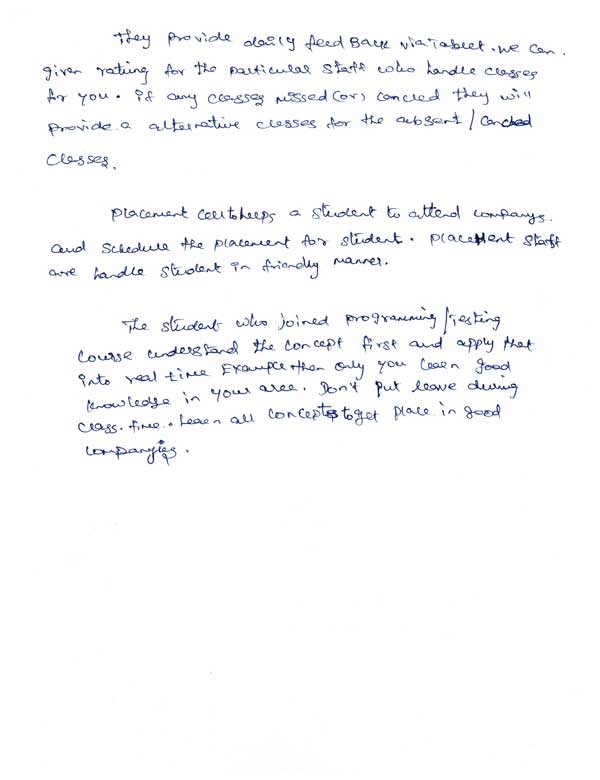 They Provide daily feed Back via Tablet. we can.
given rating for the particular staff who handle classes
for you. if any classes missed (or) cancled they will
provide a alternative classes for the absent / Cancled
Classes.
Placement cell to helps a student to attend companys.
and schedule the placement for student. placement staff
are handle student in friendly manner.
The student who joined programming / Testing
Course understand the concept first and apply that
into real time Example then only you learn good
knowledge in your area. Don't put leave during
class. time. Learn all concepts to get place in good
companyies.